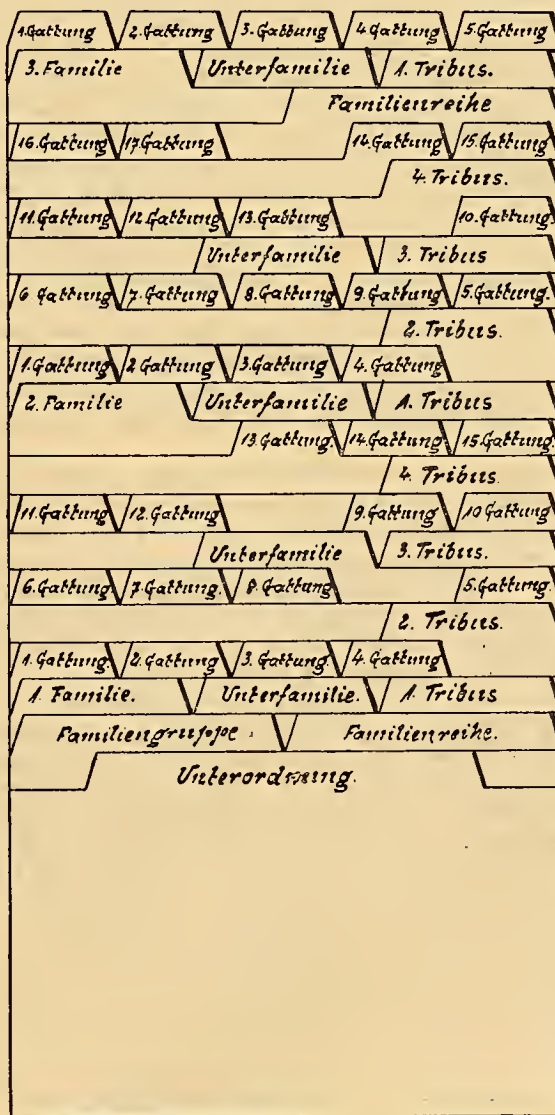 1.Gattung 2.Gattung 3.Gattung 4.Gattung 5.Gattung
3.Familie Unterfamilie 1.Tribus.
Familienreihe
16.Gattung 17.Gattung 14.Gattung 15.Gattung
4.Tribus.
11.Gattung 12.Gattung 13.Gattung 10.Gattung
Unterfamilie 3.Tribus
6 Gattung 7.Gattung 8.Gattung 9.Gattung 5.Gattung.
2.Tribus.
1.Gattung 2 Gattung 3.Gattung 4.Gattung
2.Familie Unterfamilie 1.Tribus
13.Gattung. 14.Gattung. 15.Gattung.
4.Tribus.
11.Gattung 12.Gattung 9.Gattung 10 Gattung
Unterfamilie 3.Tribus.
6.Gattung. 7.Gattung. 8.Gattung 5.Gattung.
2.Tribus.
1.Gattung. 2.Gattung 3.Gattung. 4.Gattung
1.Familie. Unterfamilie. 1.Tribus
Familiengruppe. Familienreihe.
Unterordnung.